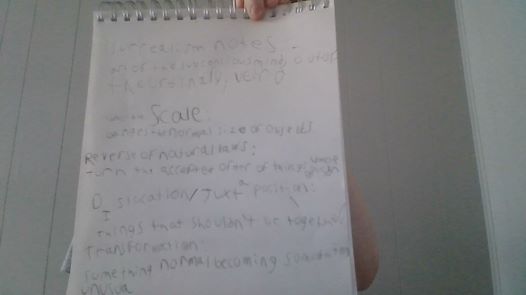 Surrealism notes
art of the subconscious mind, out of
the ordinary, weird
Scale:
normal size of objects
Reverse of natural laws:
turn the accepted order of things upside down
Dislocation/Juxtaposition:
things that shouldn't be together
Transformation:
something normal becoming something